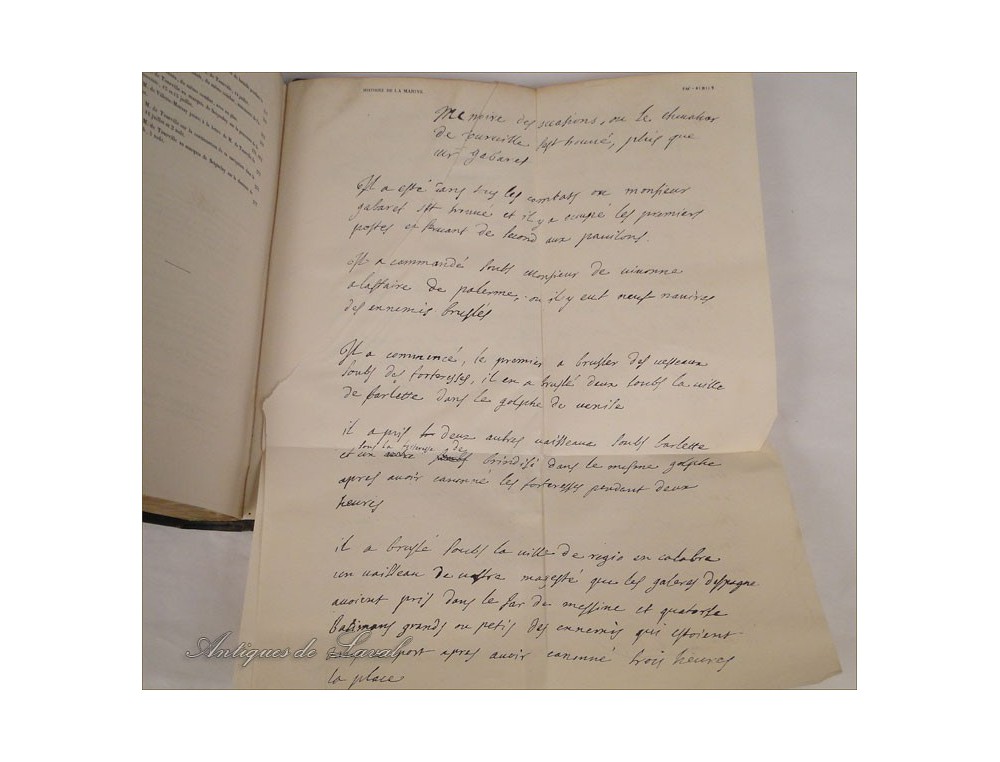 HISTOIRE DE LA MARINE.
Memoire des occasions, ou le chevalier
de tourville sest trouvé, plus que
mr gabaret
Il a esté dans tous les combats ou monsieur
gabaret est trouvé et il y a ocupé les premiers
postes et servant de second aux pavilons.
Il a commandé soubs monsieur de vivonne
alaffaire de palerme, ou il y eut neuf navires
des ennemis bruslés
Il a commencé, le premier a brusler des vesseaux
soubs des forteresses, il en a bruslé deux soubs la ville
de barlette dans le golphe de venise
il a pris deux autres vaisseaux soubs barlette
sous la forteresse de
et un brindisi dans le mesme golphe
apres avoir canonné les forteresses pendant deux
heures
il a bruslé soubs la ville de regio en calabre
un vaisseau de vostre majesté que les galeres despagne
avoient pris dans le far de messine et quatorse
batimans grands ou petis des ennemis qui estoient
port apres avoir canonné trois heures
la place
Antiques de Laval